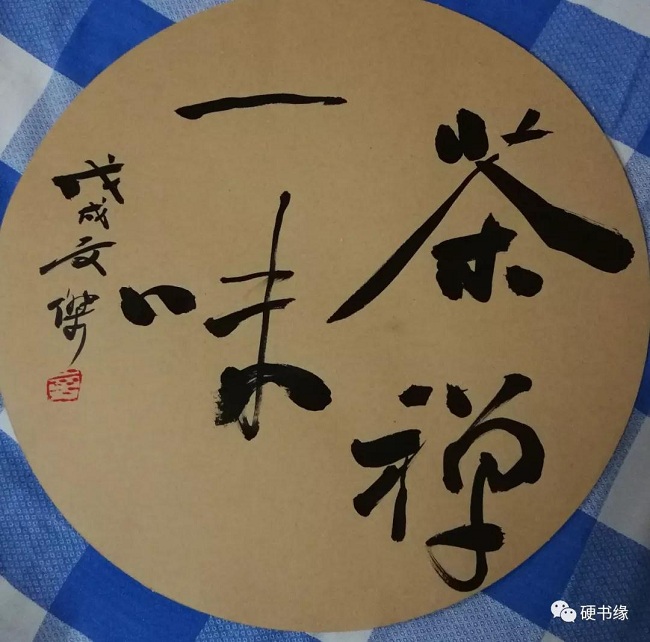 茶禅
一味
戊戌文傑
硬书缘